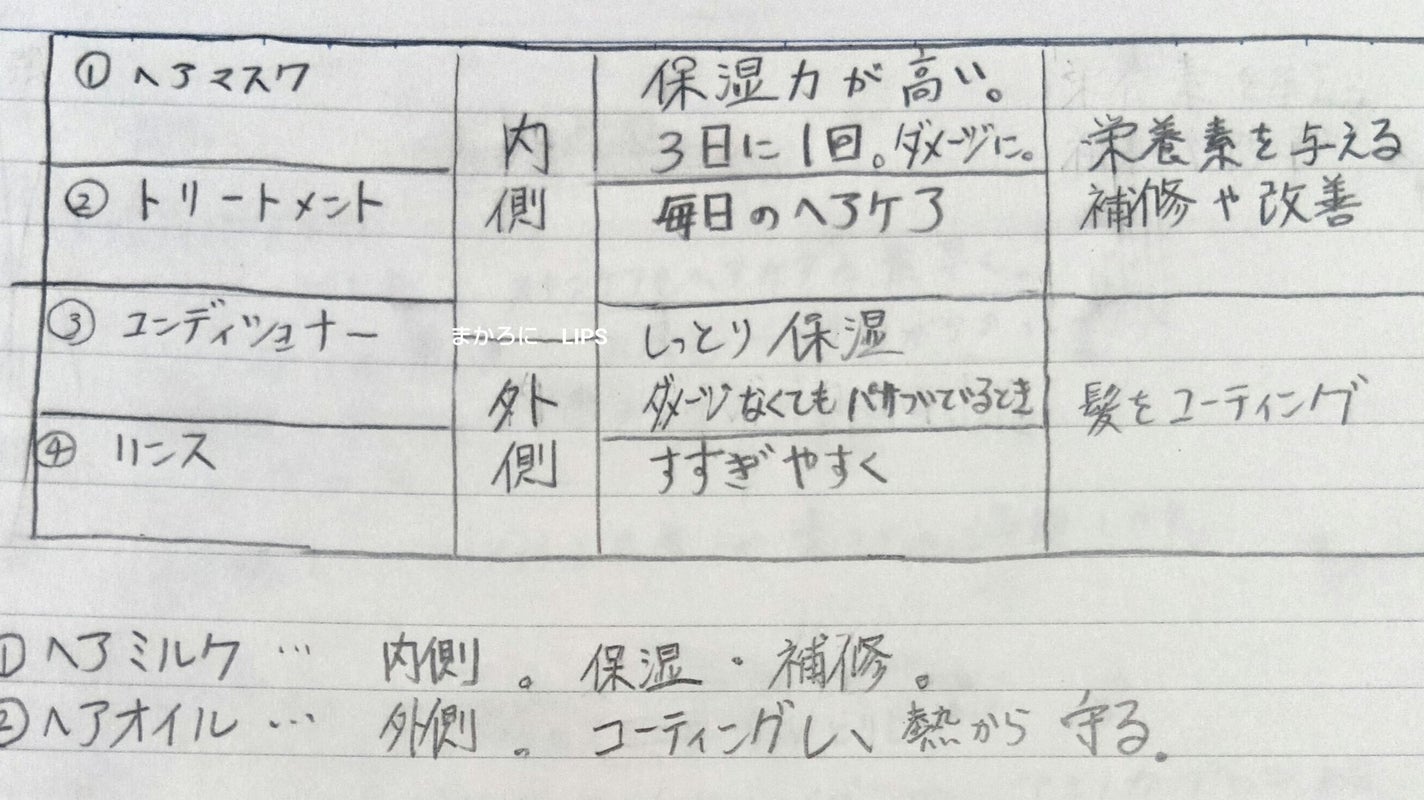 ① ヘアマスク
保湿力が高い。
内
3日に1回。ダメージに。
栄養素を与える
② トリートメント
側
毎日のヘアケア
補修や改善
③ コンディショナー
まかろに__LIPS
しっとり保湿
外
ダメージなくてもパサついてるとき
髪をコーティング
④ リンス
側
すすぎやすく
① ヘアミルク … 内側。保湿・補修。
② ヘアオイル … 外側。コーティングし、熱から守る。